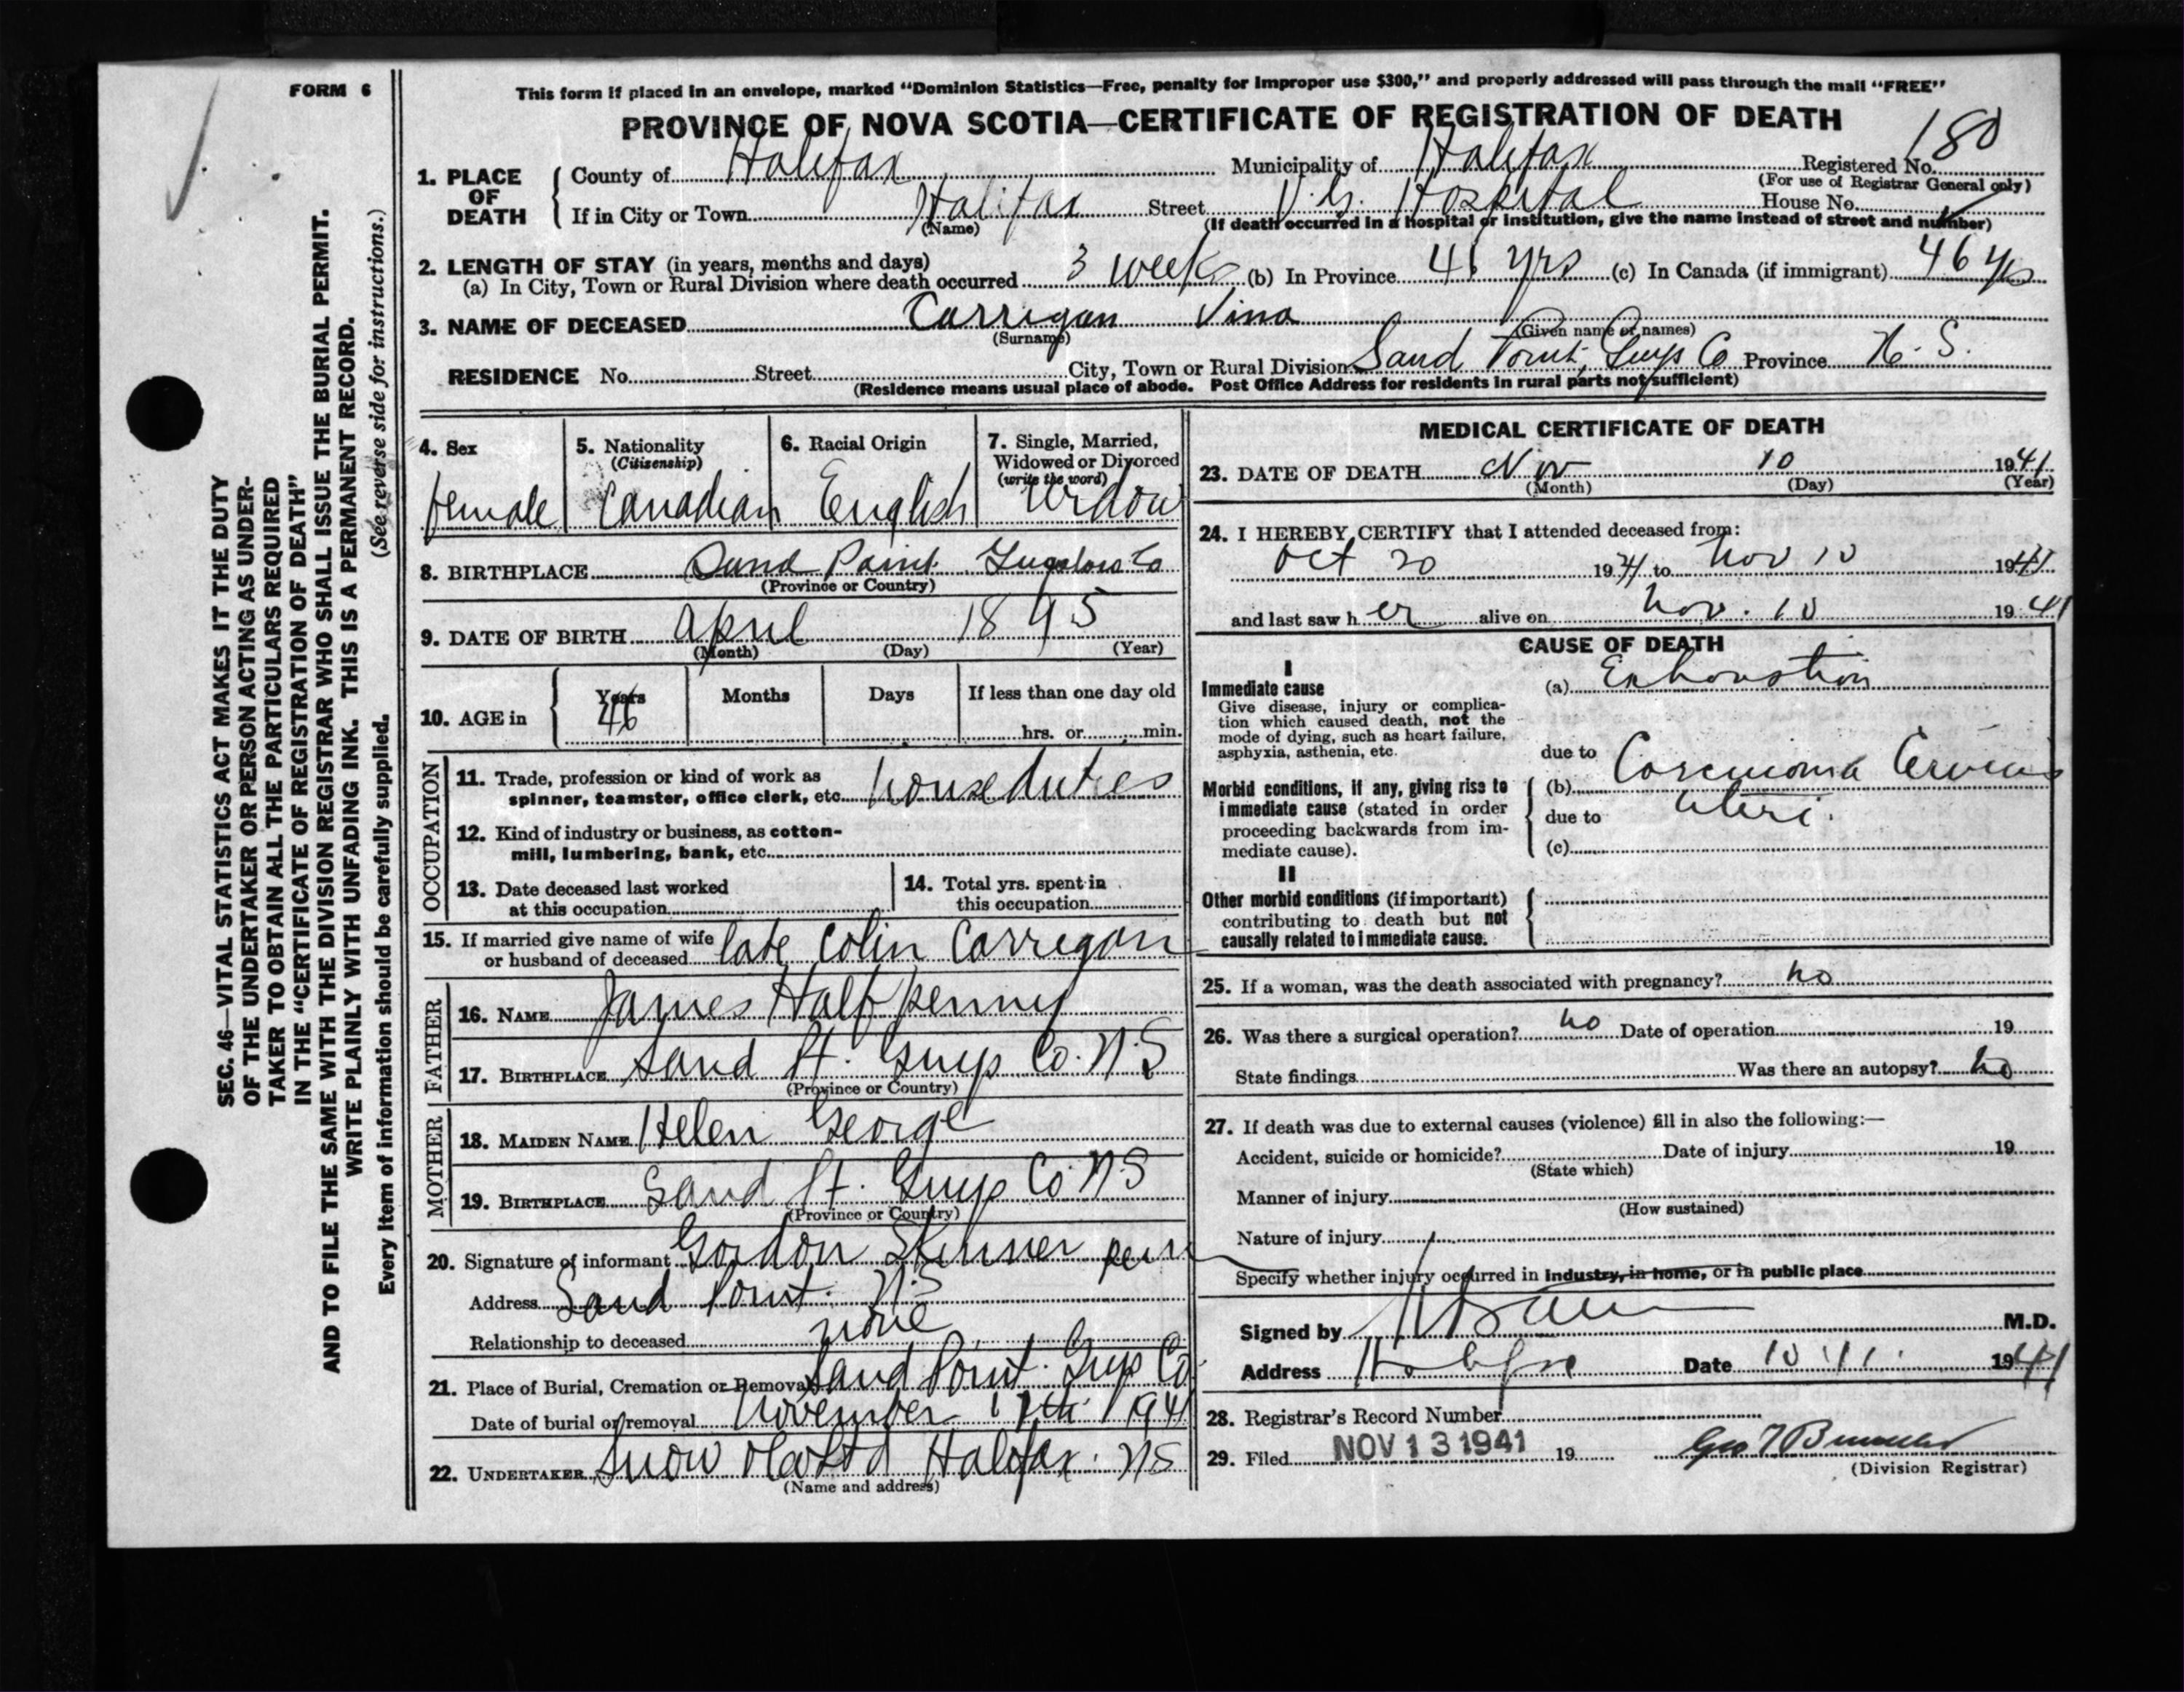 FORM 6
This form if placed in an envelope, marked "Dominion Statistics—Free, penalty for improper use $300," and properly addressed will pass through the mail "FREE"
PROVINCE OF NOVA SCOTIA—CERTIFICATE OF REGISTRATION OF DEATH
180
1. PLACE OF DEATH
County of Halifax Municipality of Halifax Registered No.
(For use of Registrar General only)
If in City or Town Halifax Street V.G. Hospital House No.
(Name) (If death occurred in a hospital or institution, give the name instead of street and number)
2. LENGTH OF STAY (in years, months and days)
(a) In City, Town or Rural Division where death occurred 3 weeks (b) In Province 46 yrs (c) In Canada (if immigrant) 46 yrs
3. NAME OF DECEASED Carrigan Vina
(Surname) (Given name or names)
RESIDENCE No. Street City, Town or Rural Division Sand Point, Guys Co Province N. S.
(Residence means usual place of abode. Post Office Address for residents in rural parts not sufficient)
4. Sex
female
5. Nationality
(Citizenship)
Canadian
6. Racial Origin
English
7. Single, Married, Widowed or Divorced
(write the word)
Widow
8. BIRTHPLACE Sand Point Guysboro Co
(Province or Country)
9. DATE OF BIRTH April 1895
(Month) (Day) (Year)
10. AGE in
Years Months Days If less than one day old
46
hrs. or min.
OCCUPATION
11. Trade, profession or kind of work as
spinner, teamster, office clerk, etc. house duties
12. Kind of industry or business, as cotton-
mill, lumbering, bank, etc.
13. Date deceased last worked
at this occupation
14. Total yrs. spent in
this occupation
15. If married give name of wife
or husband of deceased late Colin Carrigan
FATHER
16. NAME James Halfpenny
17. BIRTHPLACE Sand Pt. Guys Co. N.S
(Province or Country)
MOTHER
18. MAIDEN NAME Helen George
19. BIRTHPLACE Sand Pt. Guys Co N.S
(Province or Country)
20. Signature of informant Gordon Skinner
Address Sand Point. N.S
Relationship to deceased none
21. Place of Burial, Cremation or Removal Sand Point. Guys Co
Date of burial or removal November 1941
22. UNDERTAKER Snow Halifax. NS
(Name and address)
MEDICAL CERTIFICATE OF DEATH
23. DATE OF DEATH Nov 10 1941
(Month) (Day) (Year)
24. I HEREBY CERTIFY that I attended deceased from:
Oct 20 1941 to Nov 10 1941
and last saw her alive on Nov. 10 1941
CAUSE OF DEATH
I
Immediate cause
Give disease, injury or complica-
tion which caused death, not the
mode of dying, such as heart failure,
asphyxia, asthenia, etc.
(a) Exhaustion
due to
Morbid conditions, if any, giving rise to
immediate cause (stated in order
proceeding backwards from im-
mediate cause).
(b) Carcinoma Cervix
due to Uteri.
(c)
II
Other morbid conditions (if important)
contributing to death but not
causally related to immediate cause.
25. If a woman, was the death associated with pregnancy? no
26. Was there a surgical operation? no Date of operation 19
State findings Was there an autopsy? no
27. If death was due to external causes (violence) fill in also the following:—
Accident, suicide or homicide? Date of injury 19
(State which)
Manner of injury
(How sustained)
Nature of injury
Specify whether injury occurred in industry, in home, or in public place
Signed by M.D.
Address Halifax Date 10.11. 1941
28. Registrar's Record Number
29. Filed NOV 13 1941 19
(Division Registrar)
SEC. 46—VITAL STATISTICS ACT MAKES IT THE DUTY
OF THE UNDERTAKER OR PERSON ACTING AS UNDER-
TAKER TO OBTAIN ALL THE PARTICULARS REQUIRED
IN THE "CERTIFICATE OF REGISTRATION OF DEATH"
AND TO FILE THE SAME WITH THE DIVISION REGISTRAR WHO SHALL ISSUE THE BURIAL PERMIT.
WRITE PLAINLY WITH UNFADING INK. THIS IS A PERMANENT RECORD.
(See reverse side for instructions.)
Every item of information should be carefully supplied.